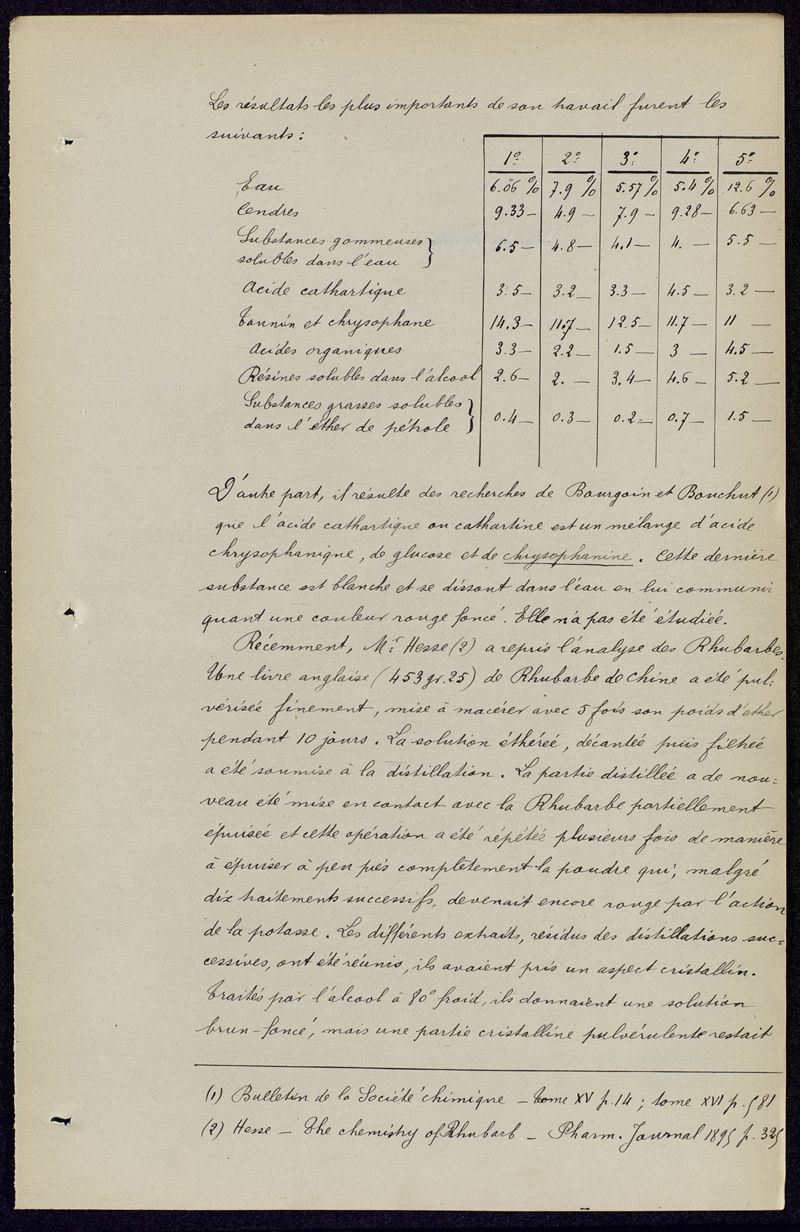 Les résultats les plus importants de son travail furent les
suivants :
1º 2º 3º 4º 5º
Eau 6.06 % 7.9 % 5.57 % 5.4 % 12.6 %
Cendres 9.33 — 4.9 — 7.9 — 9.28 — 6.63 —
Substances gommeuses
solubles dans l'eau } 6.5 — 4.8 — 4.1 — 4. — 5.5 —
Acide cathartique 3.5 — 3.2 — 3.3 — 4.5 — 3.2 —
Tannin et chrysophane 14.3 — 11.7 — 12.5 — 11.7 — 11 —
Acides organiques 3.3 — 2.2 — 1.5 — 3 — 4.5 —
Résines solubles dans l'alcool 2.6 — 2. — 3.4 — 4.6 — 5.2 —
Substances grasses solubles
dans l'éther de pétrole } 0.4 — 0.3 — 0.2 — 0.7 — 1.5 —
D'autre part, il résulte des recherches de Bourgoin et Bouchut (1)
que l'acide cathartique ou cathartine est un mélange d'acide
chrysophanique, de glucose et de chrysophanine. Cette dernière
substance est blanche et se dissout dans l'eau en lui communi-
quant une couleur rouge foncé. Elle n'a pas été étudiée.
Récemment, Mr. Hesse (2) a repris l'analyse des Rhubarbes.
Une livre anglaise (453 gr. 25) de Rhubarbe de Chine a été pul-
vérisée finement, mise à macérer avec 5 fois son poids d'ether
pendant 10 jours. La solution éthérée, décantée puis filtrée
a été soumise à la distillation. La partie distillée a de nou=
veau été mise en contact avec la Rhubarbe partiellement
épuisée et cette opération a été répétée plusieurs fois de manière
à épuiser à peu près complètement la poudre qui, malgré
dix traitements successifs, devenait encore rouge par l'action
de la potasse. Les différents extraits, résidus des distillations suc=
cessives, ont été réunis, ils avaient pris un aspect cristallin.
Traités par l'alcool à 80º froid, ils donnaient une solution
brun-foncé, mais une partie cristalline pulvérulente restait
(1) Bulletin de la Société chimique — tome XV p. 14 ; tome XVI p. 581
(2) Hesse — The chemistry of Rhubarb — Pharm. Journal 1895 p. 325